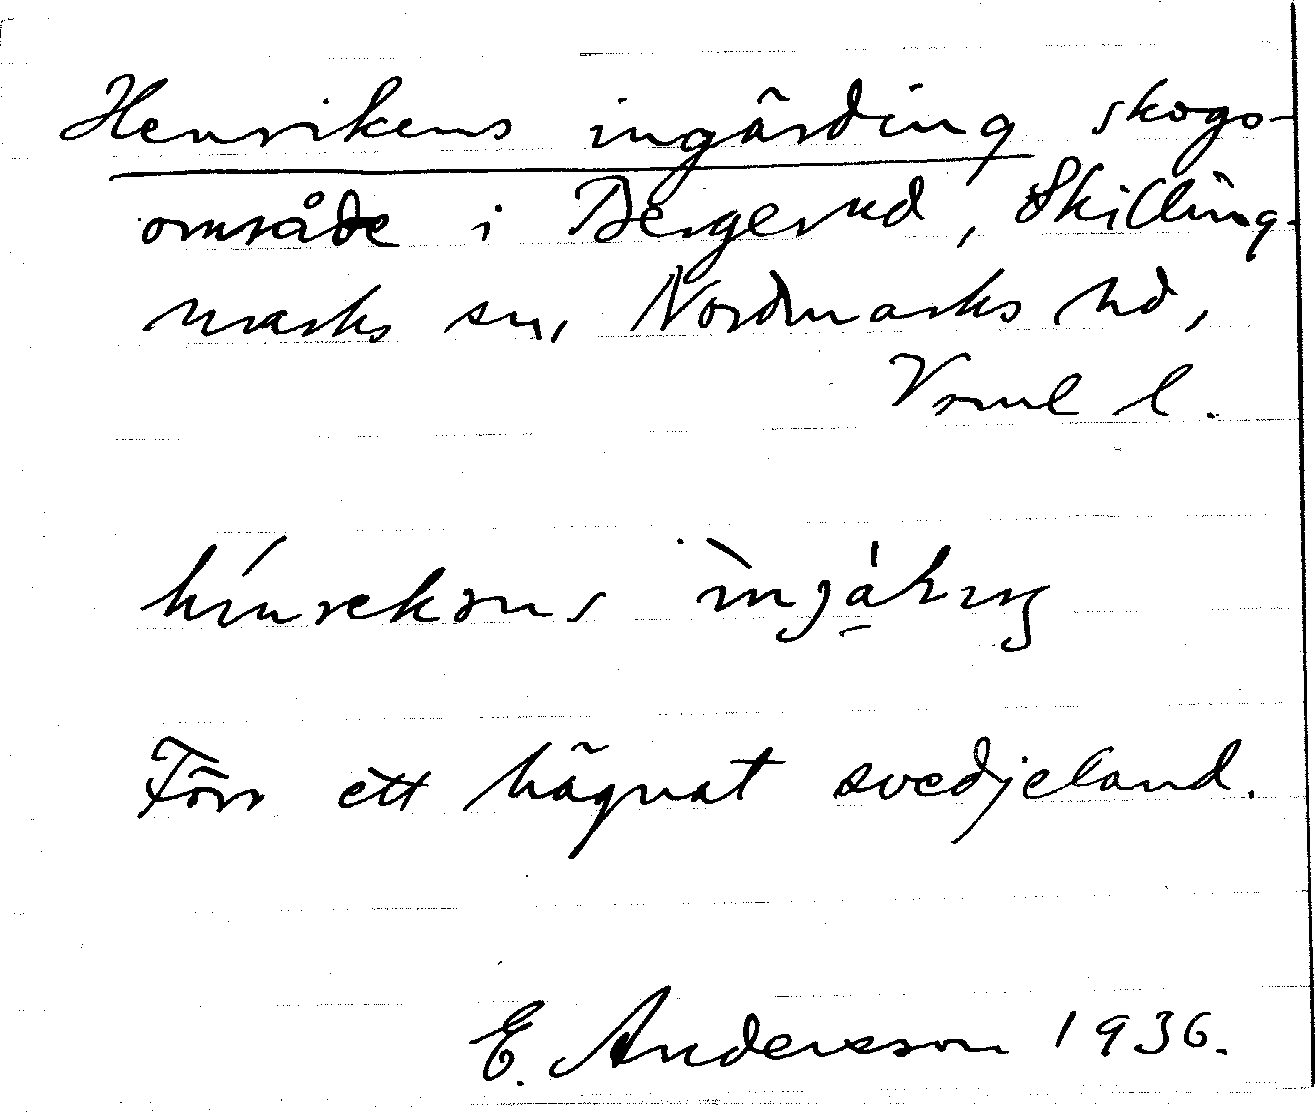 Henrikens ingärding skogs-
område i Bergerud, Skilling-
marks sn, Nordmarks hd,
Vrml l.
hínrekəns
Förr ett hägnat svedjeland.
E. Andersson 1936.